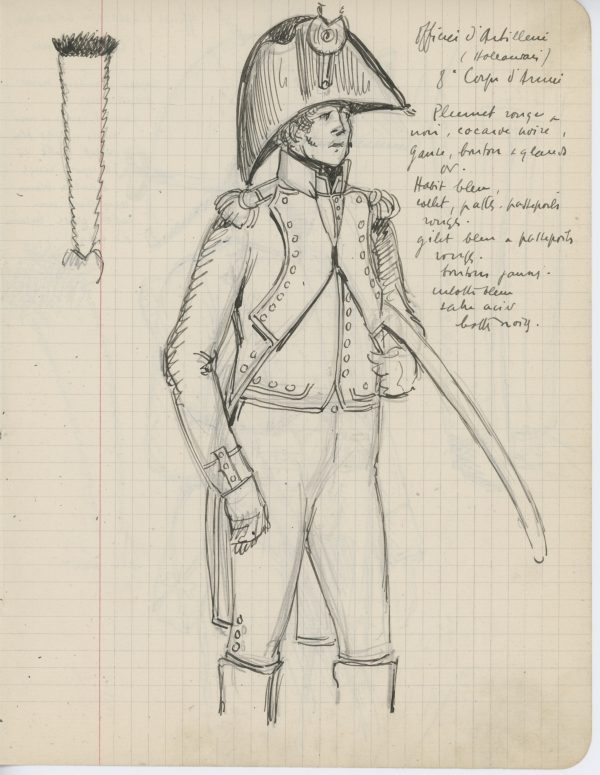 Officier d'Artillerie
(Hollandais)
8e Corps d'Armée
Plumet rouge &
noir, cocarde noire,
Ganse, bouton & glands
or.
Habit bleu,
collet, pattes, passepoils
rouges.
gilet bleu à passepoils
rouges.
boutons jaunes.
culotte bleu
sabre acier
bottes noires.